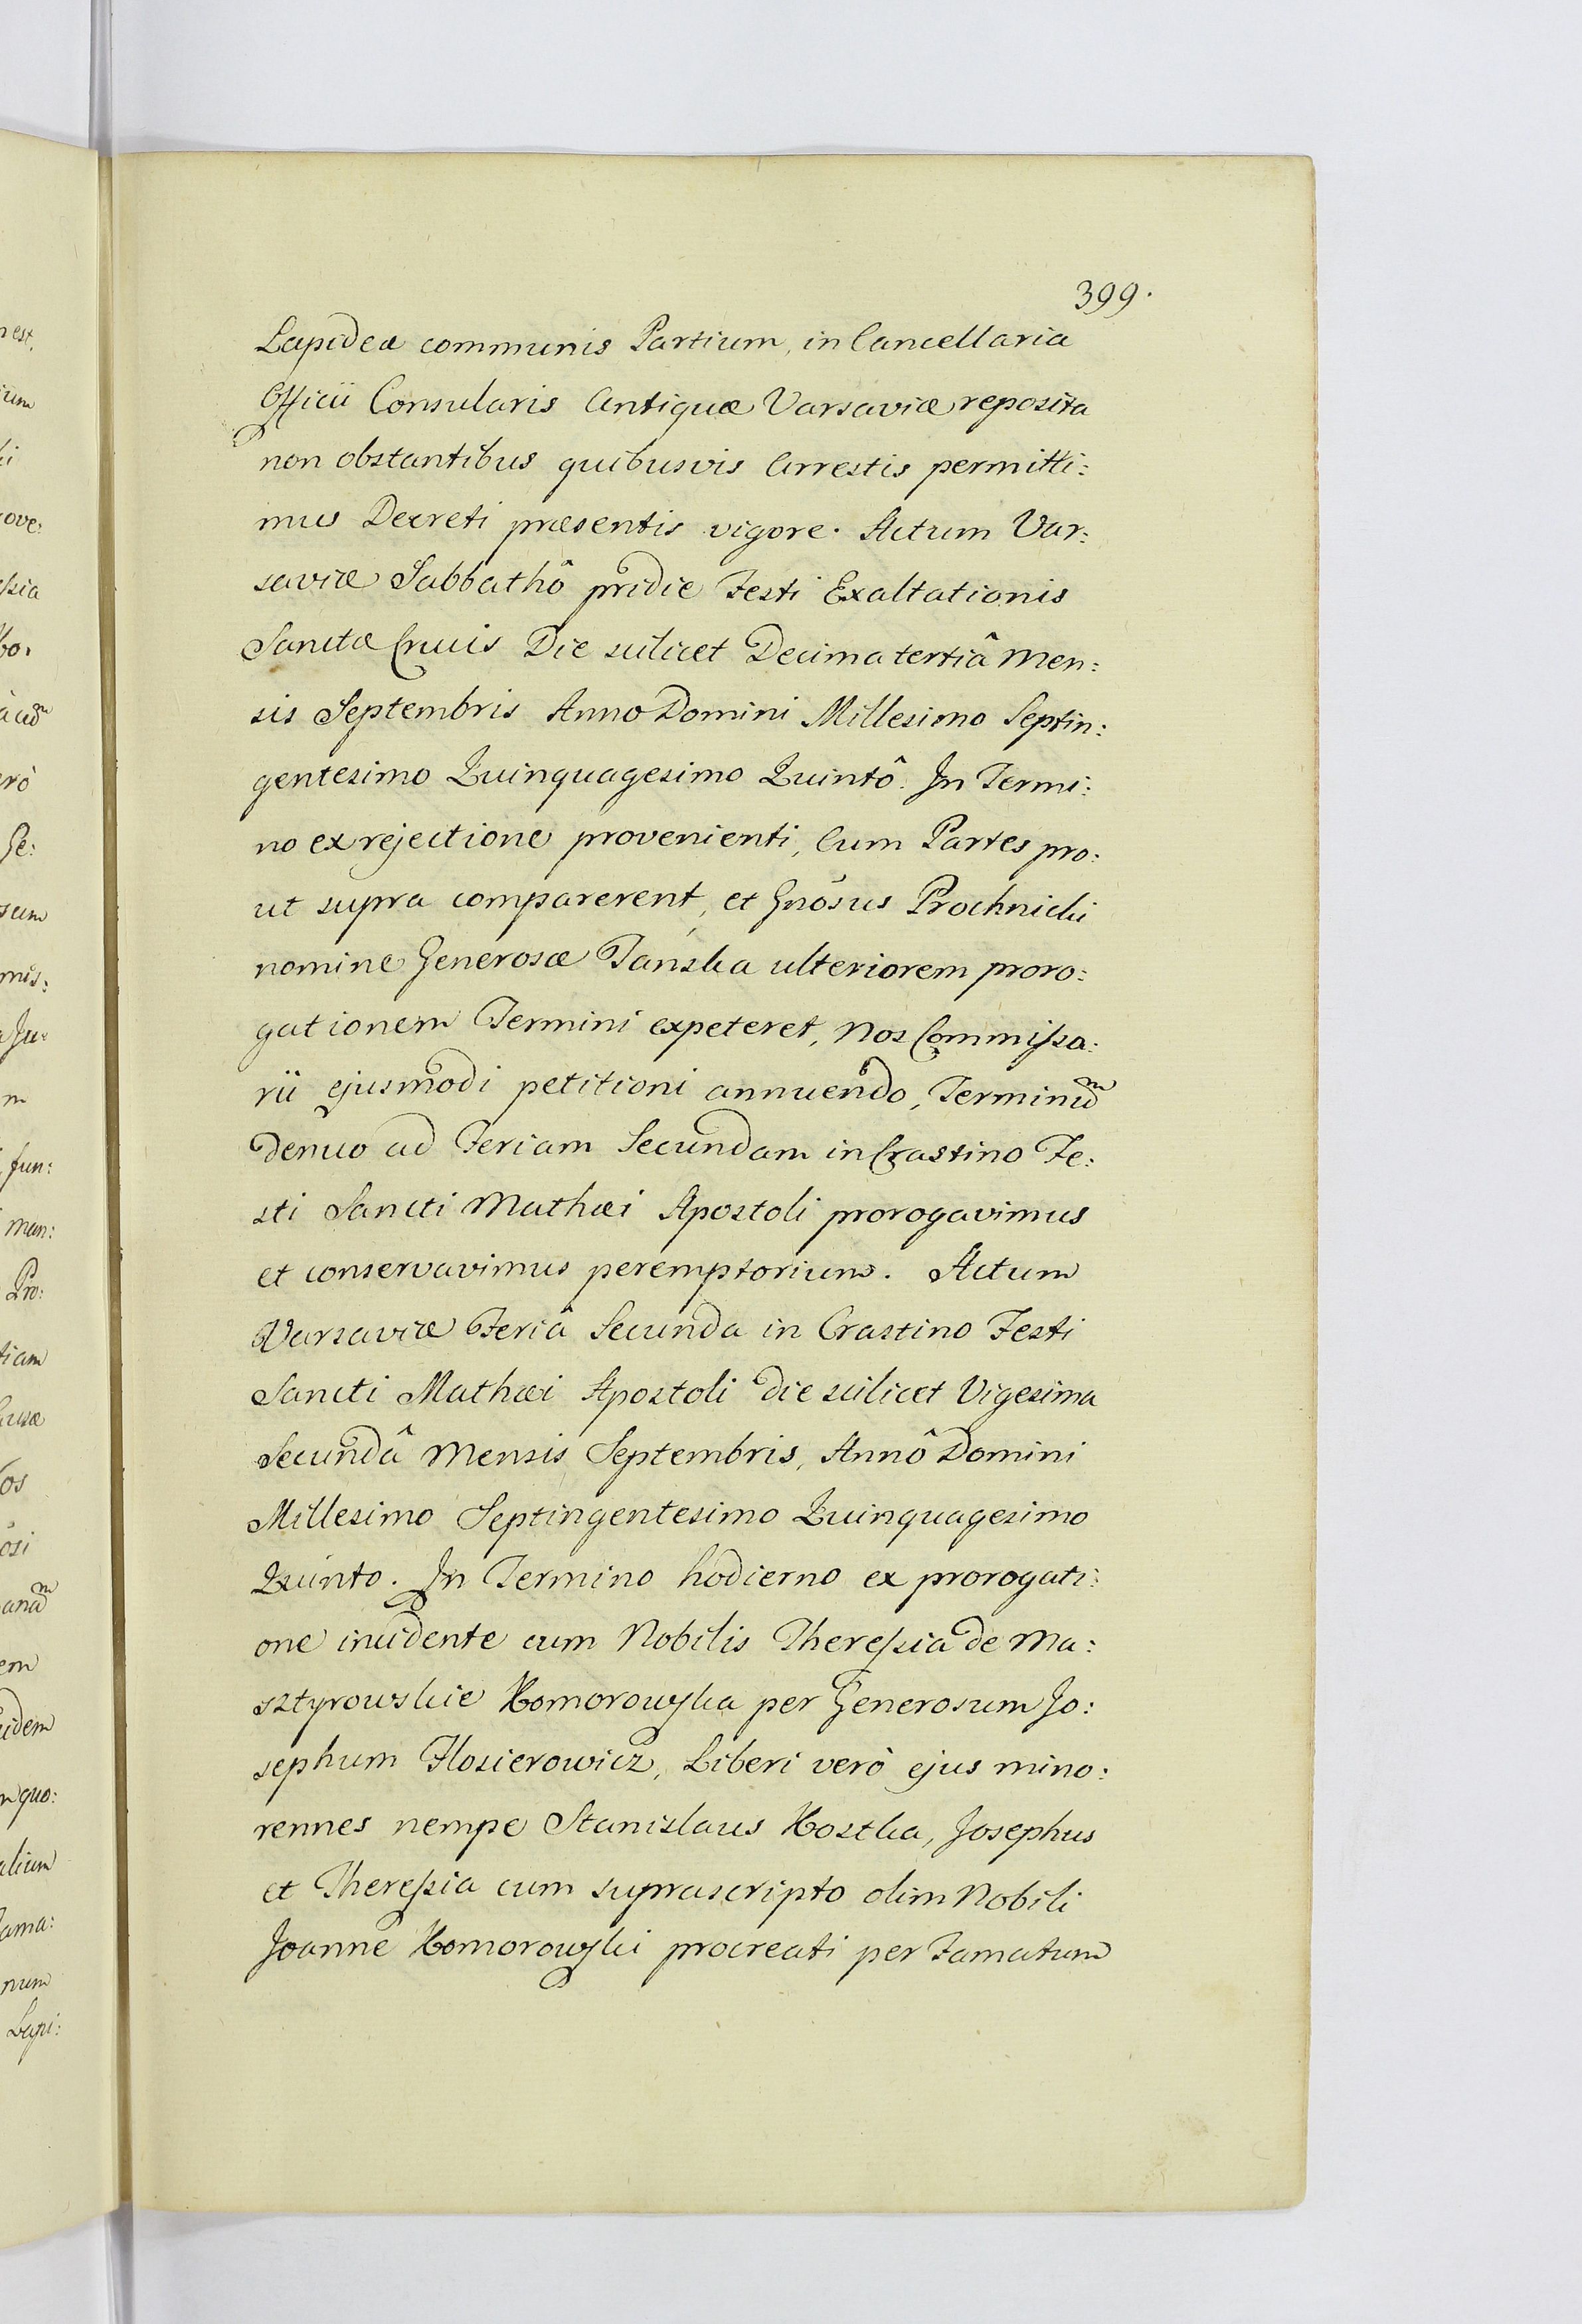 399.
Lapideæ communis Partium, in Cancellaria
Officii Consularis Antiquæ Varsaviæ reposita
non obstantibus quibusvis Arrestis permitti:
mus Decreti præsentis vigore. Actum Var:
saviæ Sabbathô pridie Festi Exaltationis
Sanctæ Crucis Die scilicet Decima tertiâ Men:
sis Septembris Anno Domini Millesimo Septin:
gentesimo Quinquagesimo Quintô. In Termi:
no ex rejectione provenienti, Cum Partes pro:
ut supra comparerent, et Gnôsus Prochnicki
nomine Generosæ Tańska ulteriorem proro:
gationem Termini expeteret, Nos Commissa:
rii ejusmodi petitioni annuendo, Terminum
denuo ad Feriam Secundam in Crastino Fe:
sti Sancti Mathæi Apostoli prorogavimus
et conservavimus peremptorium. Actum
Varsaviæ Feriâ Secunda in Crastino Festi
Sancti Mathæi Apostoli die scilicet Vigesima
Secundâ Mensis Septembris, Annô Domini
Millesimo Septingentesimo Quinquagesimo
Quinto. In Termino hodierno ex prorogati:
one incidente cum Nobilis Theressia de Ma:
sztyrowskie Komorowska per Generosum Jo:
sephum Flosierowicz, Liberi verò ejus mino:
rennes nempe Stanislaus Kostka, Josephus
et Theressia cum suprascripto olim Nobili
Joanne Komorowski procreati per Famatum